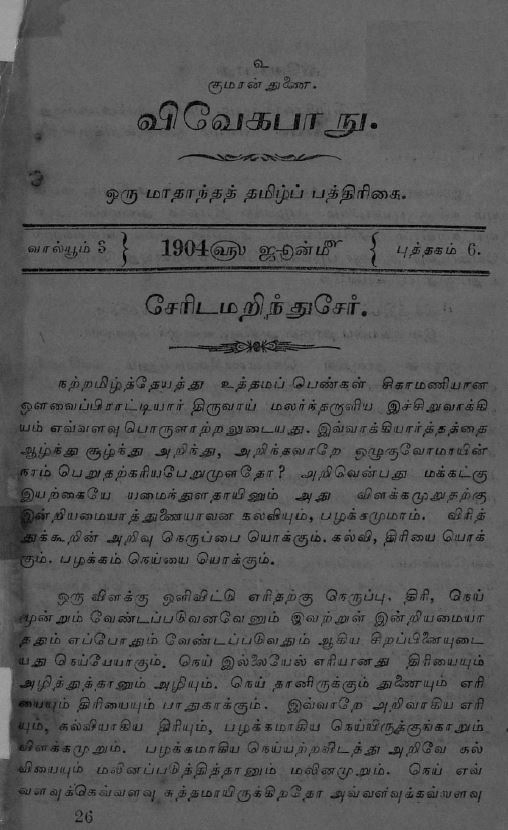 உ
குமரன் துணை.
விவேகபாநு.
ஒரு மாதாந்தத் தமிழ்ப் பத்திரிகை.
வால்யூம் 3 } 1904௵ ஜூன்௴ { புத்தகம் 6.
சேரிடமறிந்துசேர்.
நற்றமிழ்த்தேயத்து உத்தமப் பெண்கள் சிகாமணியான
ஔவைப்பிராட்டியார் திருவாய் மலர்ந்தருளிய இச்சிறுவாக்கி
யம் எவ்வளவு பொருளாற்றலுடையது. இவ்வாக்கியார்த்தத்தை
ஆழ்ந்து சூழ்ந்து அறிந்து, அறிந்தவாறே ஒழுகுவோமாயின்
நாம் பெறுதற்கரியபேறுமுளதோ? அறிவென்பது மக்கட்கு
இயற்கையே யமைந்துளதாயினும் அது விளக்கமுறுதற்கு
இன்றியமையாத்துணையாவன கல்வியும், பழக்கமுமாம். விரித்
துக்கூறின் அறிவு நெருப்பை யொக்கும். கல்வி, திரியை யொக்
கும். பழக்கம் நெய்யை யொக்கும்.
ஒரு விளக்கு ஒளிவிட்டு எரிதற்கு நெருப்பு, திரி, நெய்
மூன்றும் வேண்டப்படுவனவேனும் இவற்றுள் இன்றியமையா
ததும் எப்போதும் வேண்டப்படுவதும் ஆகிய சிறப்பினையுடை
யது நெய்யேயாகும். நெய் இல்லையேல் எரியானது திரியையும்
அழித்துத்தானும் அழியும். நெய் தானிருக்கும் துணையும் எரி
யையும் திரியையும் பாதுகாக்கும். இவ்வாறே அறிவாகிய எரி
யும், கல்வியாகிய திரியும், பழக்கமாகிய நெய்யிருக்குங்காறும்
விளக்கமுறும். பழக்கமாகிய நெய்யற்றவிடத்து அறிவே கல்
வியையும் மலினப்படுத்தித்தானும் மலினமுறும். நெய் எவ்
வளவுக்கெவ்வளவு சுத்தமாயிருக்கிறதோ அவ்வளவுக்கவ்வளவு
26